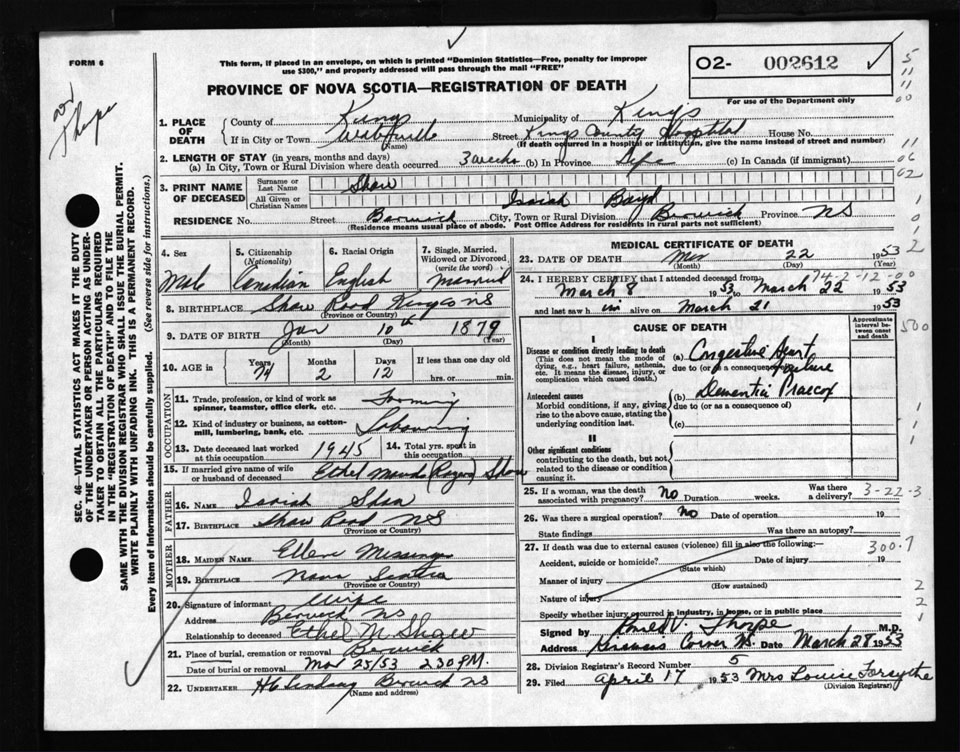 FORM 6
This form, if placed in an envelope, on which is printed "Dominion Statistics—Free, penalty for improper
use $300," and properly addressed will pass through the mail "FREE"
O2- 002612
PROVINCE OF NOVA SCOTIA—REGISTRATION OF DEATH
For use of the Department only
Thorpe
1. PLACE OF DEATH
County of Kings Municipality of Kings
If in City or Town Street Kings County Hospital House No.
(Name) (If death occurred in a hospital or institution, give the name instead of street and number)
2. LENGTH OF STAY (in years, months and days)
(a) In City, Town or Rural Division where death occurred 3 weeks (b) In Province Life (c) In Canada (if immigrant)
3. PRINT NAME OF DECEASED
Surname or Last Name Shaw
All Given or Christian Names Isaiah Boyd
RESIDENCE No. Street Berwick City, Town or Rural Division Berwick Province NS
(Residence means usual place of abode. Post Office Address for residents in rural parts not sufficient)
4. Sex Male
5. Citizenship (Nationality) Canadian
6. Racial Origin English
7. Single, Married, Widowed or Divorced (write the word) Married
8. BIRTHPLACE Shaw Road Kings Co NS
(Province or Country)
9. DATE OF BIRTH Jan 10th 1879
(Month) (Day) (Year)
10. AGE in Years 74 Months 2 Days 12 If less than one day
hrs. or min.
OCCUPATION
11. Trade, profession, or kind of work as spinner, teamster, office clerk, etc. Farming
12. Kind of industry or business, as cotton-mill, lumbering, bank, etc. Labouring
13. Date deceased last worked at this occupation 1945 14. Total yrs. spent in this occupation
15. If married give name of wife or husband of deceased Ethel Maude Shaw
FATHER
16. Name Isaiah Shaw
17. Birthplace Shaw Road NS
(Province or Country)
MOTHER
18. MAIDEN NAME Ellen
19. BIRTHPLACE Nova Scotia
(Province or Country)
20. Signature of informant Wife
Address Berwick NS
Relationship to deceased Ethel M Shaw
21. Place of burial, cremation or removal Berwick
Date of burial or removal Mar 25/53 2 30 P.M.
22. UNDERTAKER Berwick NS
(Name and address)
MEDICAL CERTIFICATE OF DEATH
23. DATE OF DEATH Mar 22 1953
(Month) (Day) (Year)
74-2-12-00
24. I HEREBY CERTIFY that I attended deceased from
March 8 1953 to March 22 1953
and last saw him alive on March 21 1953
CAUSE OF DEATH
Approximate interval between onset and death
I
Disease or condition directly leading to death (a) Congestive Heart Failure
(This does not mean the mode of dying, e.g., heart failure, asthenia, etc. It means the disease, injury, or complication which caused death.)
due to (or as a consequence of)
Antecedent causes (b) Dementia Praecox
Morbid conditions, if any, giving rise to the above cause, stating the underlying condition last.
due to (or as a consequence of)
(c)
II
Other significant conditions
contributing to the death, but not related to the disease or condition causing it.
25. If a woman, was the death associated with pregnancy? No Duration weeks. Was there a delivery?
3-22-3
26. Was there a surgical operation? No Date of operation 19
State findings Was there an autopsy?
27. If death was due to external causes (violence) fill in also the following: 300.7
Accident, suicide or homicide? Date of injury 19
(State which)
Manner of injury
(How sustained)
Nature of injury
Specify whether injury occurred in industry, in home, or in public place
Signed by V. Thorpe M.D.
Address Corner NS. Date March 28 1953
28. Division Registrar's Record Number 5
29. Filed April 17 1953 Mrs Louise Forsythe
(Division Registrar)
SEC. 46—VITAL STATISTICS ACT MAKES IT THE DUTY
OF THE UNDERTAKER OR PERSON ACTING AS UNDER-
TAKER TO OBTAIN ALL THE PARTICULARS REQUIRED
IN THE "REGISTRATION OF DEATH" AND TO FILE THE
SAME WITH THE DIVISION REGISTRAR WHO SHALL ISSUE THE BURIAL PERMIT.
WRITE PLAINLY WITH UNFADING INK. THIS IS A PERMANENT RECORD.
Every item of information should be carefully supplied. (See reverse side for instructions.)